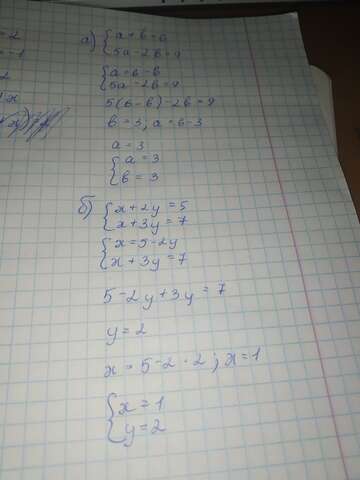 = 2
= -1
2
а) { a + в = 6
5a - 2в = 9
{ a = 6 - в
5a - 2в = 9
5(6 - в) - 2в = 9
в = 3; a = 6 - 3
a = 3
{ a = 3
в = 3
б) { x + 2y = 5
x + 3y = 7
{ x = 5 - 2y
x + 3y = 7
5 - 2y + 3y = 7
y = 2
x = 5 - 2 · 2; x = 1
{ x = 1
y = 2